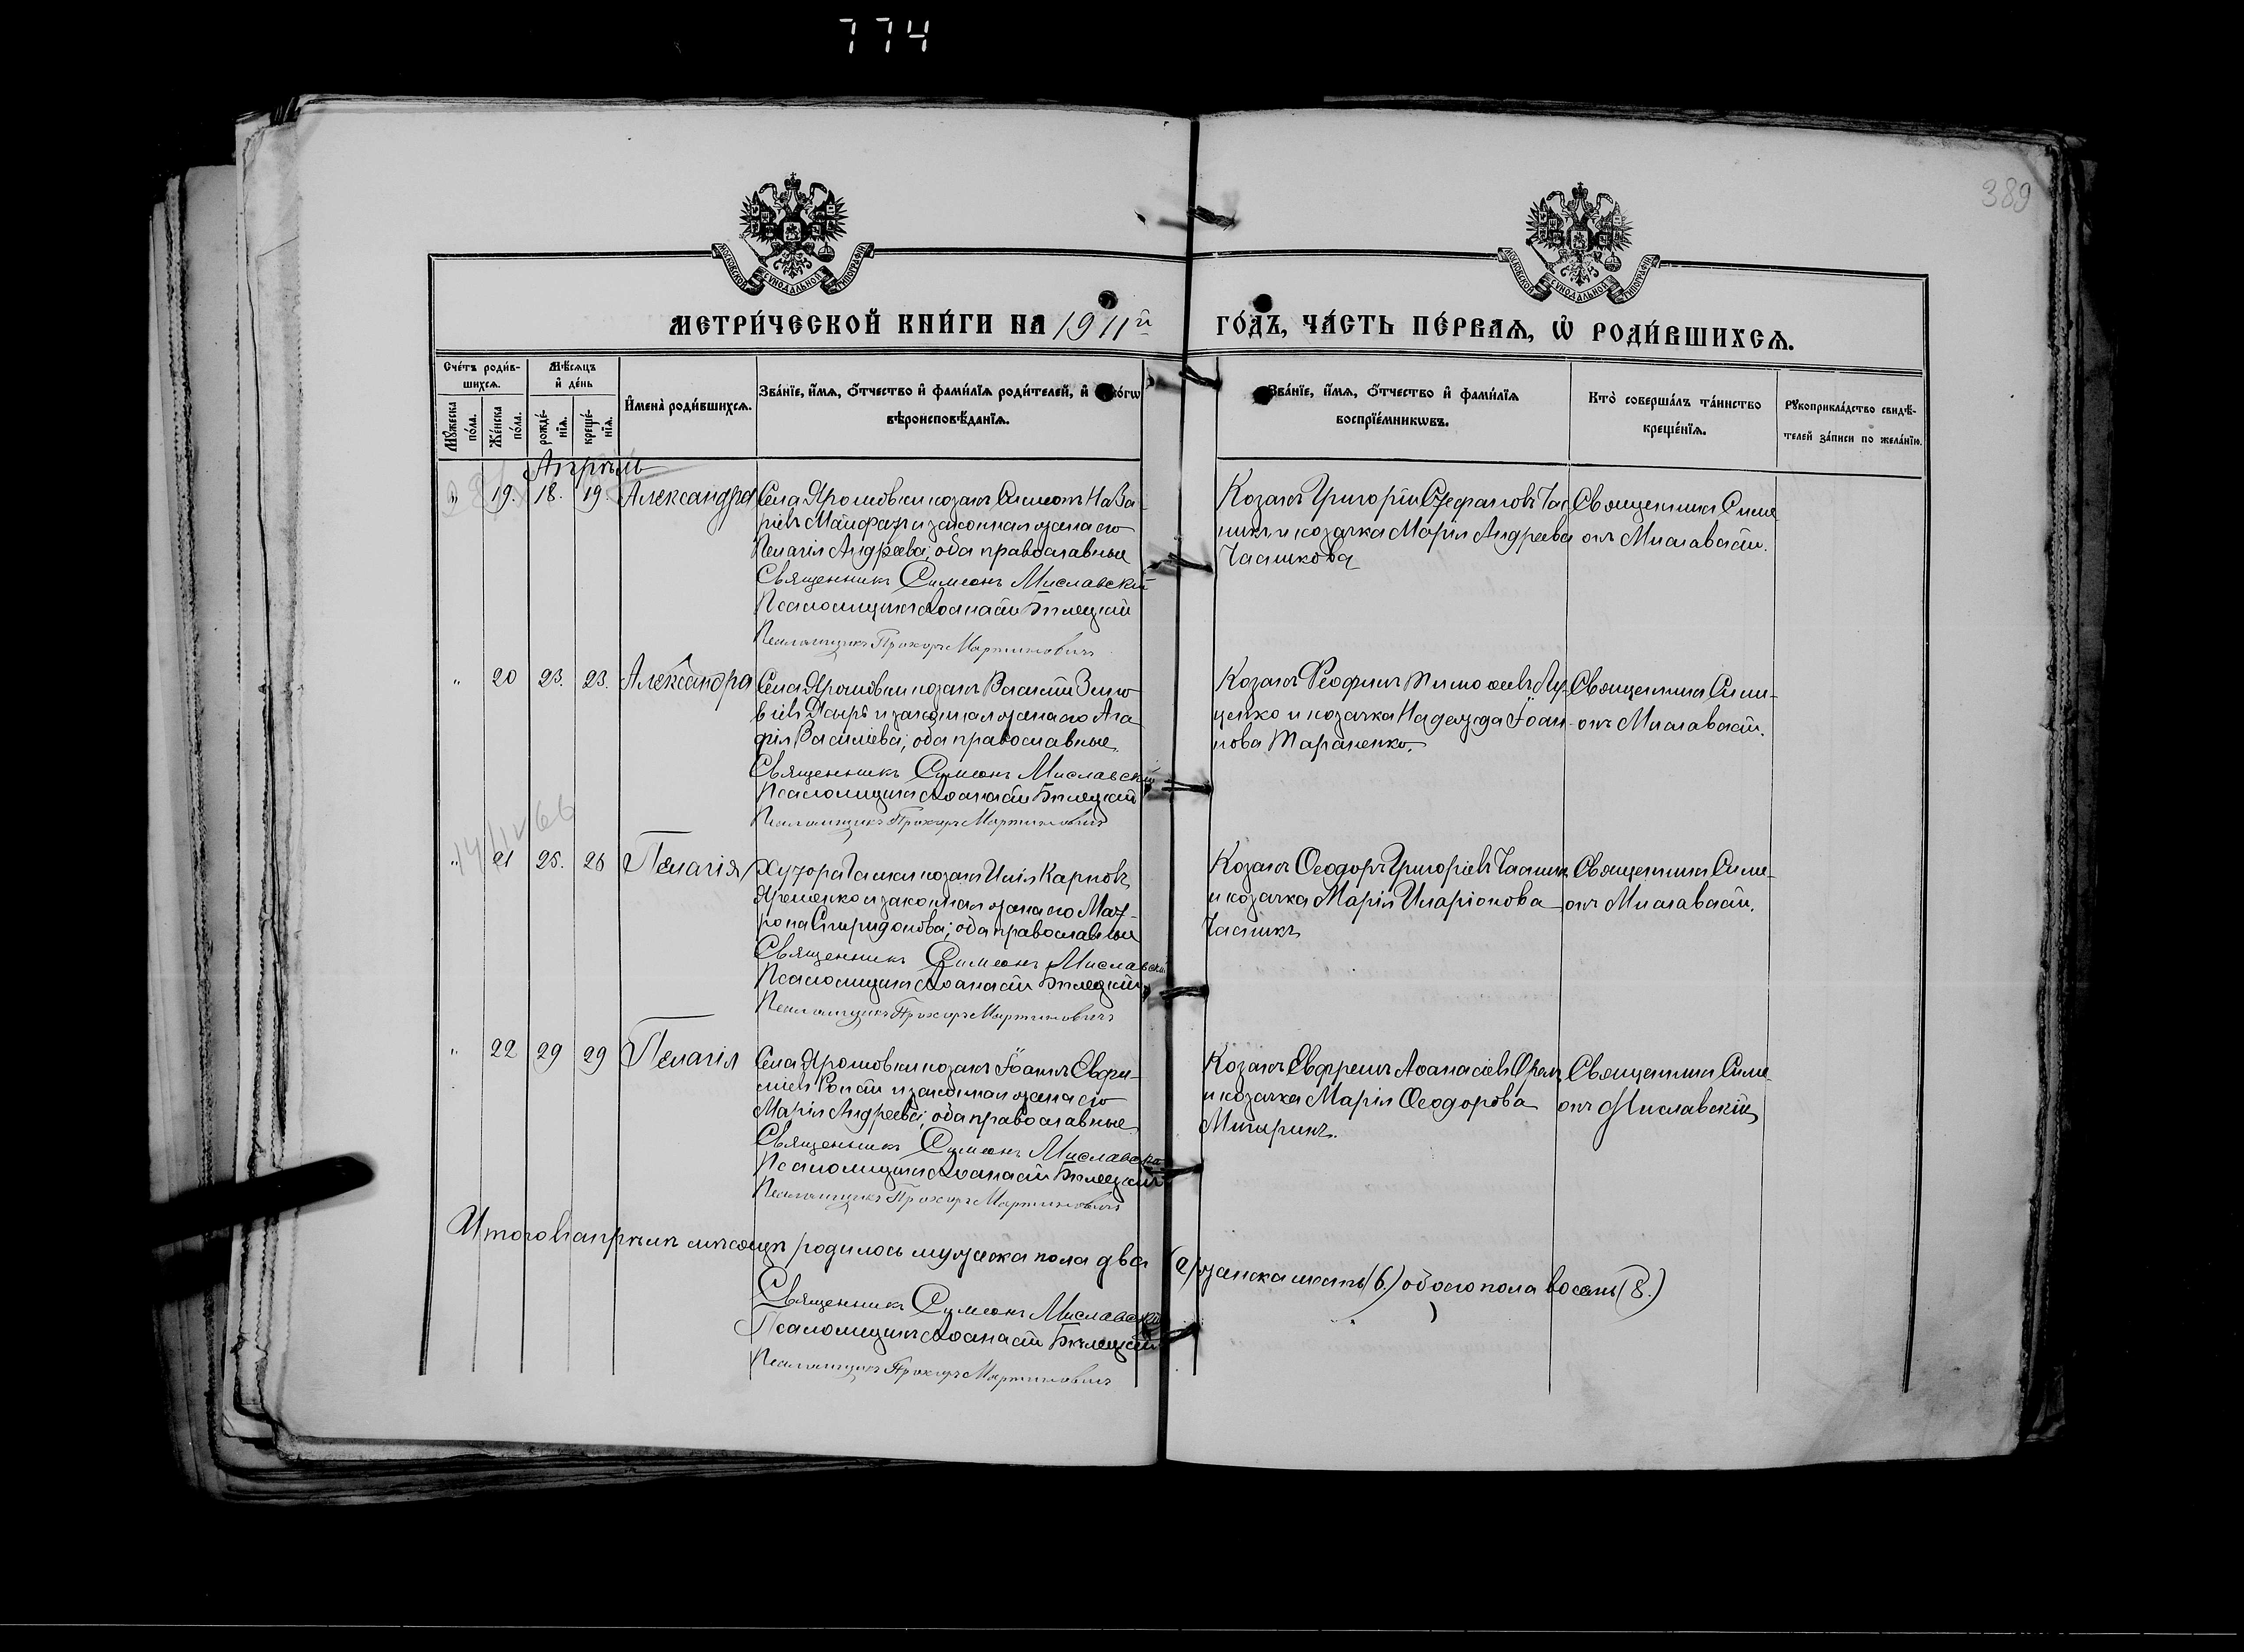 774
389
МОСКОВСКОЙ СУНОДАЛЬНОЙ ТИПОГРАФІИ
МОСКОВСКОЙ СУНОДАЛЬНОЙ ТИПОГРАФІИ
МЕТРИ́ЧЕСКОЙ КНИ́ГИ НА 1911й ГО́ДЪ, ЧА́СТЬ ПЕ́РВАѦ, Ѽ РОДИ́ВШИХСѦ.
Сче́тъ роди́в-
шихсѧ.
Мѣ́сѧцъ
и҆ де́нь
Мꙋ́жеска
по́ла.
Же́нска
по́ла.
рожде́-
нїѧ.
креще́-
нїѧ.
И҆мена̀ роди́вшихсѧ.
Зва́нїе, и҆́мѧ, ѻ҆́тчество и҆ фами́лїѧ роди́телей, и҆
вѣроисповѣ́данїѧ.
Зва́нїе, и҆́мѧ, ѻ҆́тчество и҆ фами́лїѧ
воспрїе́мникѡвъ.
Кто̀ соверша́лъ та́инство
креще́нїѧ.
Рꙋкоприкла́дство свидѣ́-
телей за́писи по жела́нїю.
Апрѣль
" 19. 18. 19. Александра
Села Яромовки козакъ Симеонъ Наза-
ріевъ и законная жена его
Пелагія Андреева; оба православные
Священникъ Симеонъ Миславскій
Псаломщикъ Аѳанасій Бѣлецкій
Псаломщикъ Прохоръ Мартиновичъ
Козакъ Григорій Стефановъ Час-
никъ и козачка Марія Андреева
Часникова
Священникъ Симе-
онъ Миславскій.
" 20 23. 23. Александра
Села Яромовки козакъ Василій Зино-
віевъ и законная жена его Ага-
фія Василіева; оба православные.
Священникъ Симеонъ Миславскій
Псаломщикъ Аѳанасій Бѣлецкій
Псаломщикъ Прохоръ Мартиновичъ
Козакъ Феофилъ Тимоѳеевъ Лу-
ценко и козачка Надежда Іоан-
нова Тараненко.
Священникъ Симе-
онъ Миславскій.
14/IV 66
" 21 25. 26 Пелагія
Хутора козакъ Илія Карповъ
Яременко и законная жена его Мат-
рона Спиридонова; оба православные
Священникъ Симеонъ Миславскій
Псаломщикъ Аѳанасій Бѣлецкій
Псаломщикъ Прохоръ Мартиновичъ
Козакъ Ѳеодоръ Григоріевъ Часник
и козачка Марія Иларіонова
Часникъ
Священникъ Симе-
онъ Миславскій.
" 22 29 29 Пелагія
Села Яромовки козакъ Іоаннъ Евфи-
міевъ и законная жена его
Марія Андреева; оба православные
Священникъ Симеонъ Миславскій
Псаломщикъ Аѳанасій Бѣлецкій
Псаломщикъ Прохоръ Мартиновичъ
Козакъ Евфремъ Аѳанасіевъ
и козачка Марія Ѳеодорова
Священникъ Симе-
онъ Миславскій
Итого въ апрѣлѣ мѣсяцѣ родилось мужеска пола два (2) женска шесть (6.) обоего пола восемь (8.)
Священникъ Симеонъ Миславскій
Псаломщикъ Аѳанасій Бѣлецкій
Псаломщикъ Прохоръ Мартиновичъ